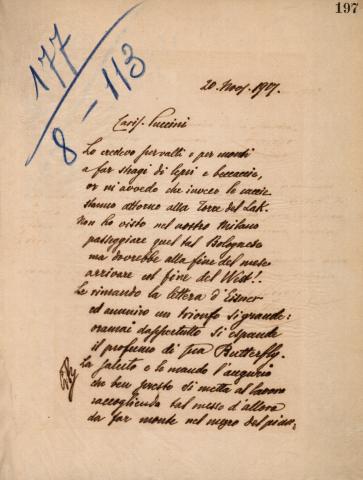 197
177
8 - 113
20. Nov. 1907.
Cariss. Puccini
Lo credevo per valli e per monti
a far stragi di lepri e beccaccie,
or mi avvedo che invece le caccie
stanno attorno alla Torre del Lak.
Non ho visto nel nostro Milano
passeggiare quel tal Bolognese
ma dovrebbe alla fine del mese
arrivare col fine del West!.
Le rimando la lettera d'Eisner
ed annunzio un trionfo si grande:
oramai dappertutto si espande
il profumo di Sua Butterfly.
La saluto e le mando l'augurio
che ben presto si metta al lavoro
raccogliendo tal messe d'alloro
da far monte nel regno del piano.